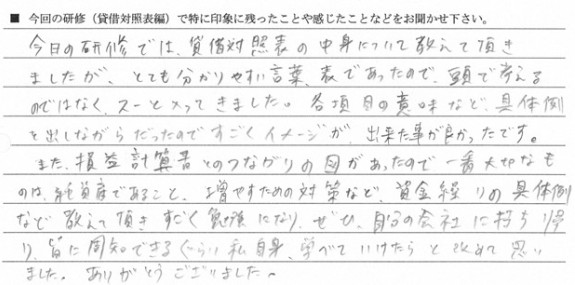 ■ 今回の研修（貸借対照表編）で特に印象に残ったことや感じたことなどをお聞かせ下さい。
今日の研修では、貸借対照表の中身について教えて頂き
ましたが、とても分かりやすい言葉、表であったので、頭で考える
のではなく、スーと入ってきました。各項目の意味など、具体例
を出しながらだったのですごくイメージが、出来た事が良かったです。
また、損益計算書とのつながりの図があったので一番大切なも
のは、純資産であること、増やすための対策など、資金繰りの具体例
など教えて頂きすごく勉強になり、ぜひ、自分の会社に持ち帰
り、皆に周知できるぐらい私自身、学べていけたらと改めて思い
ました。ありがとうございました。